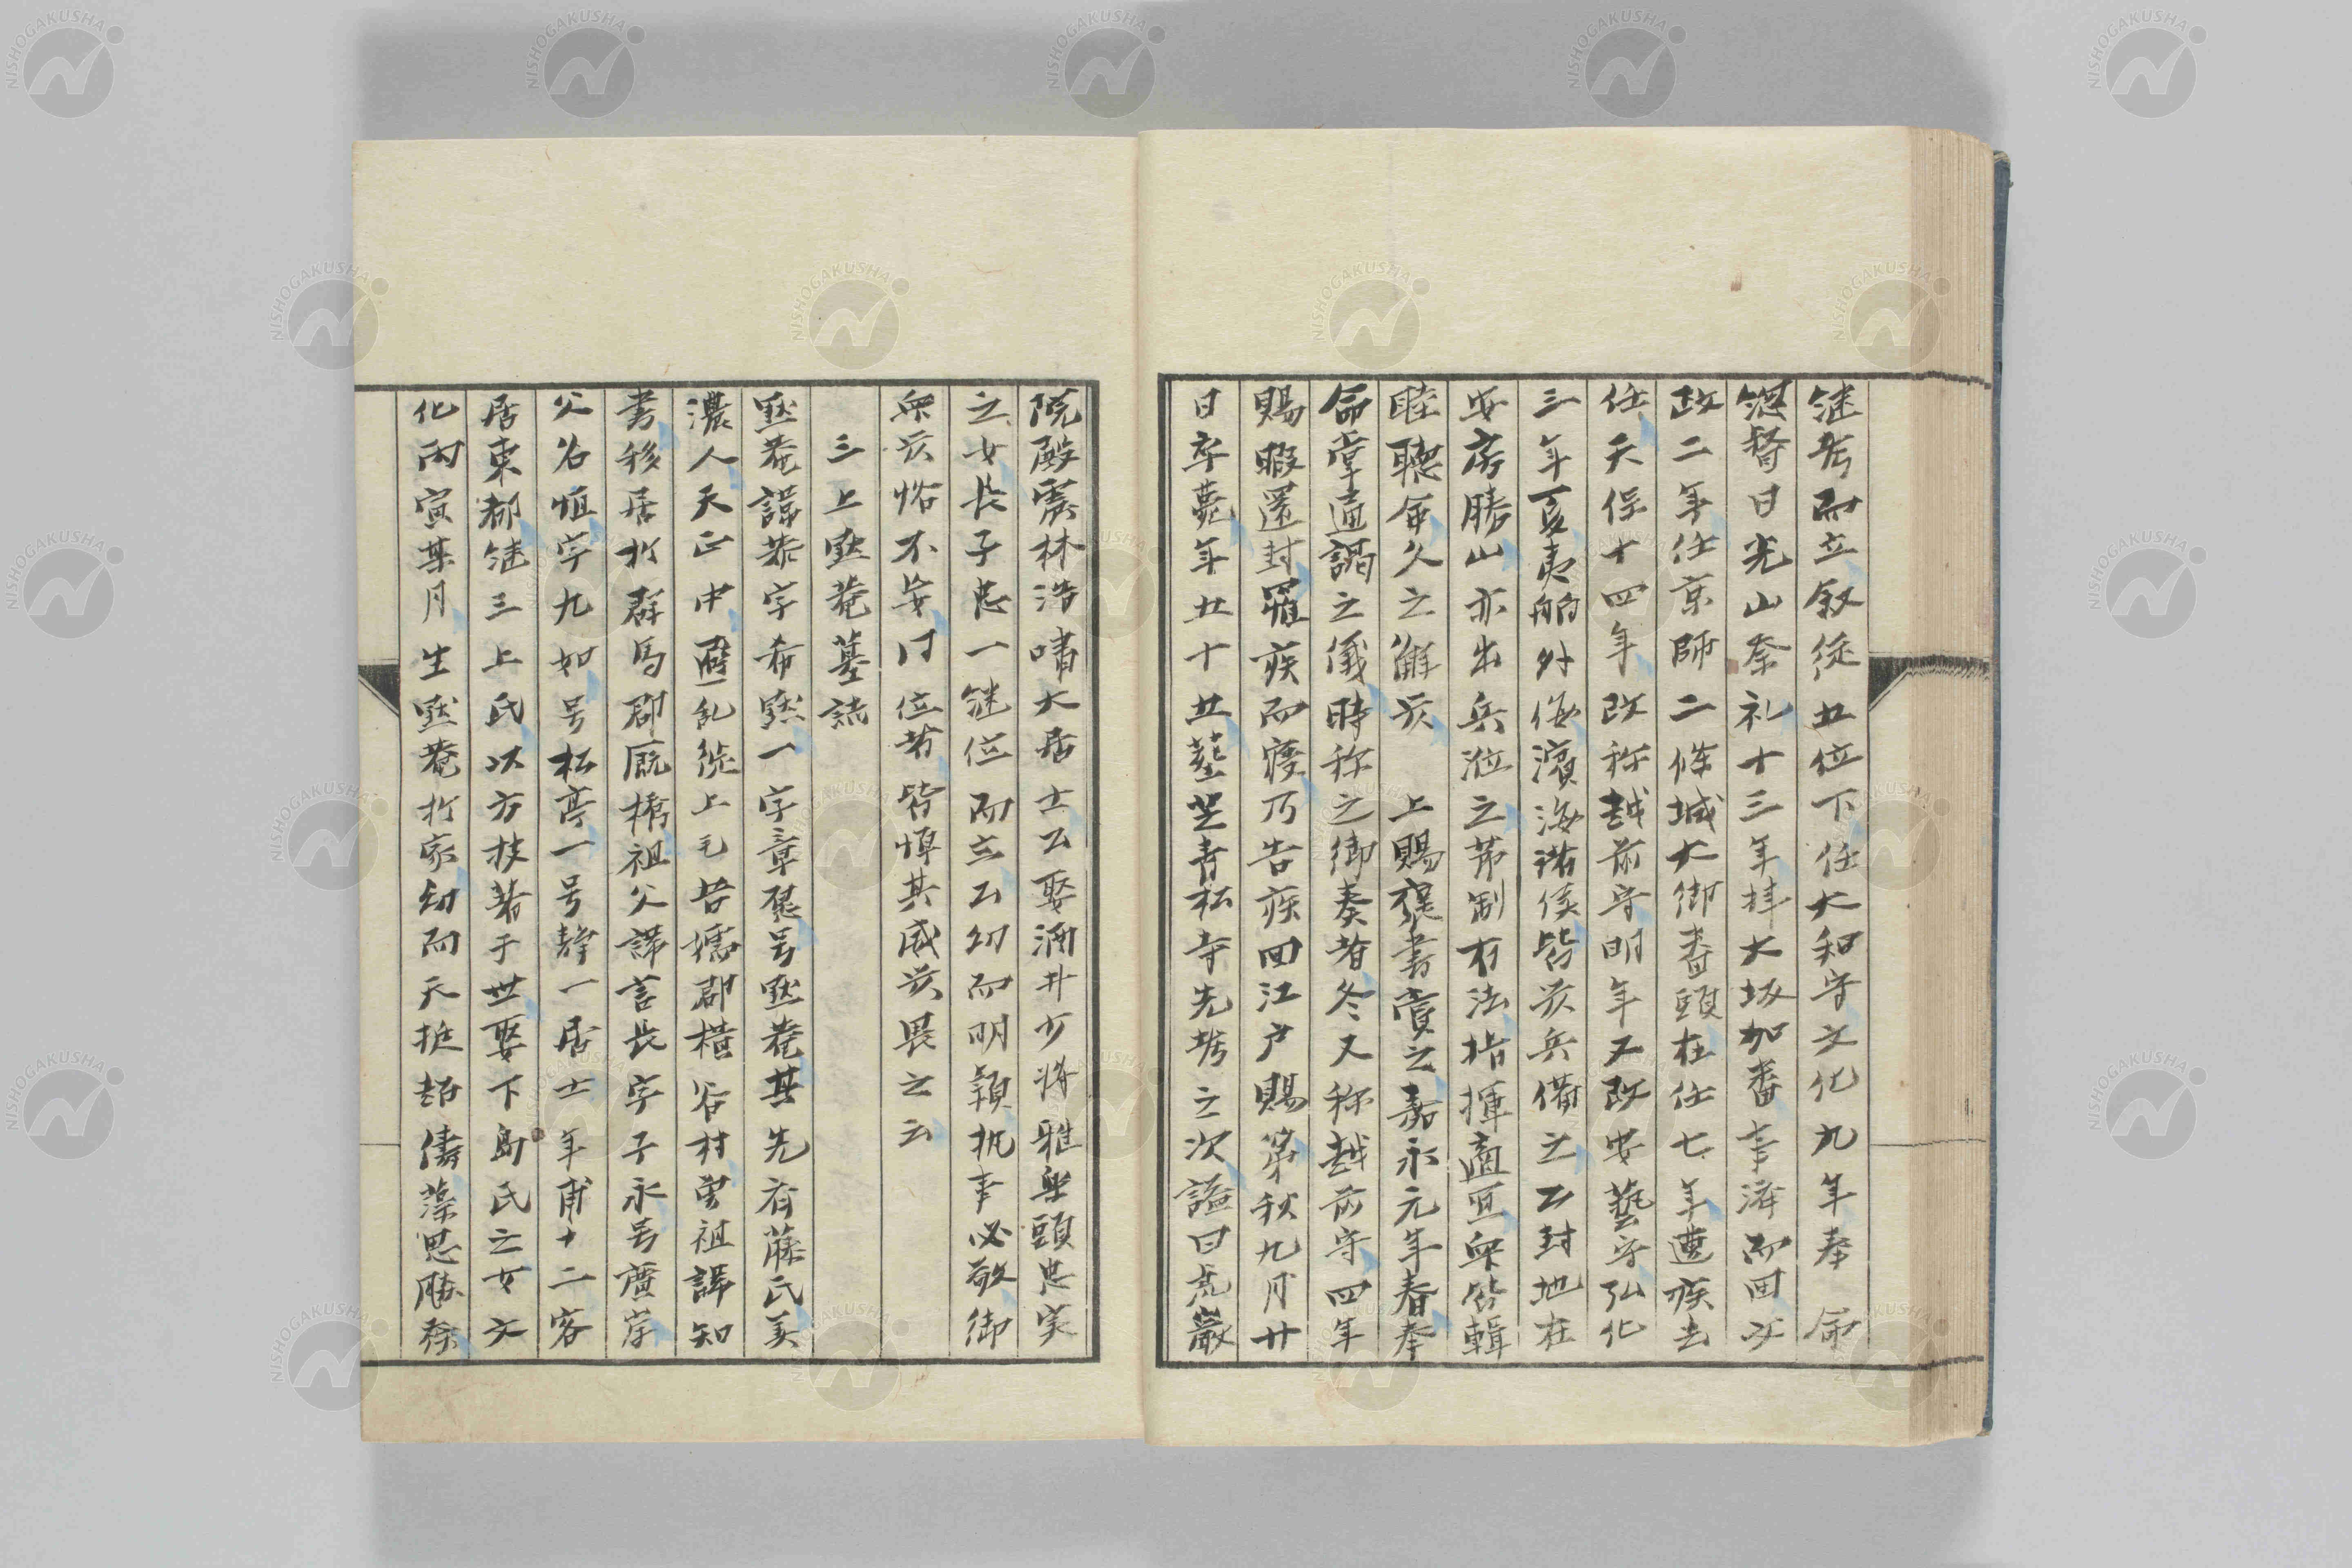 継考而立叙従五位下任大和守文化九年奉 命
総督日光山祭礼十三年拝大坂加番事済而回文
政二年任京師二條城大御番頭在任七年遭疾去
任天保十四年改称越前守明年又改安藝守弘化
三年夏夷舶外侮濱海諸侯皆発兵備之公封地在
安房勝山亦出兵涖之節制有法指揮適宜衆皆輯
睦聴命久之解兵 上賜褒書賞之嘉永元年春奉
命掌通謁之儀時称之御奏者冬又称越前守四年
賜暇還封罹疾而寝乃告疾回江戸賜第秋九月廿
日卒薨年五十五葬芝青松寺先考之次諡曰亮巌
院殿震林浩嘯大居士公娶酒井少将雅楽頭忠実
之女長子忠一継位而立公幼而明穎執事必敬御
衆以恪不安同位者皆憚其威以畏之云
三上黙菴墓誌
黙菴諱恭字希黙一字章煕号黙菴其先有藤氏美
濃人天正中避乱従上毛甘楽郡横谷村曽祖諱知
書移居於群馬郡厩橋祖父諱言長字子永号廣岸
父名恒字九如号松亭一号静一居士年甫十二客
居東都継三上氏以方技著于世娶下島氏之女文
化丙寅某月生黙菴於家幼而天挺超儔藻思勝希
NISHOGAKUSHA